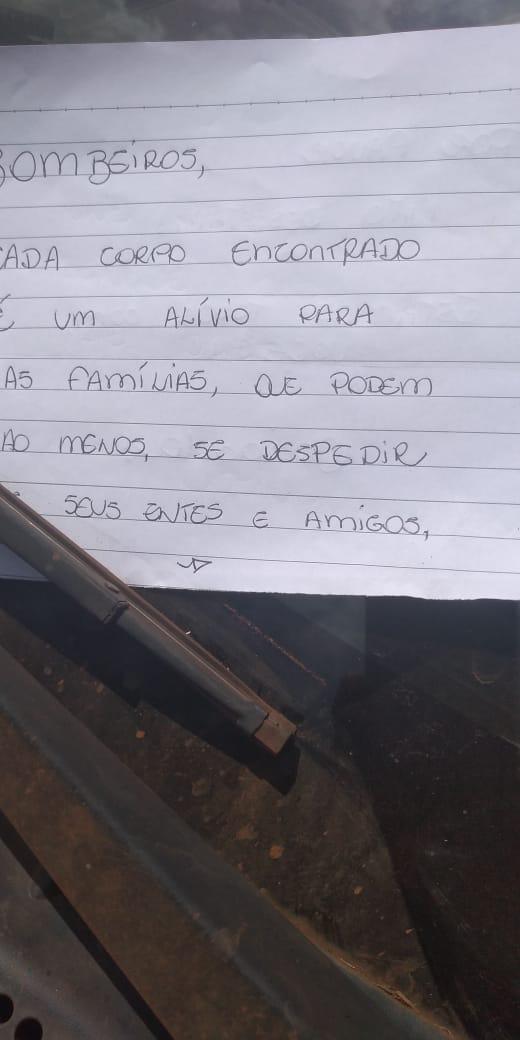 BOMBEIROS,
CADA CORPO ENCONTRADO
É UM ALÍVIO PARA
AS FAMÍLIAS, QUE PODEM
AO MENOS, SE DESPEDIR
SEUS ENTES E AMIGOS,